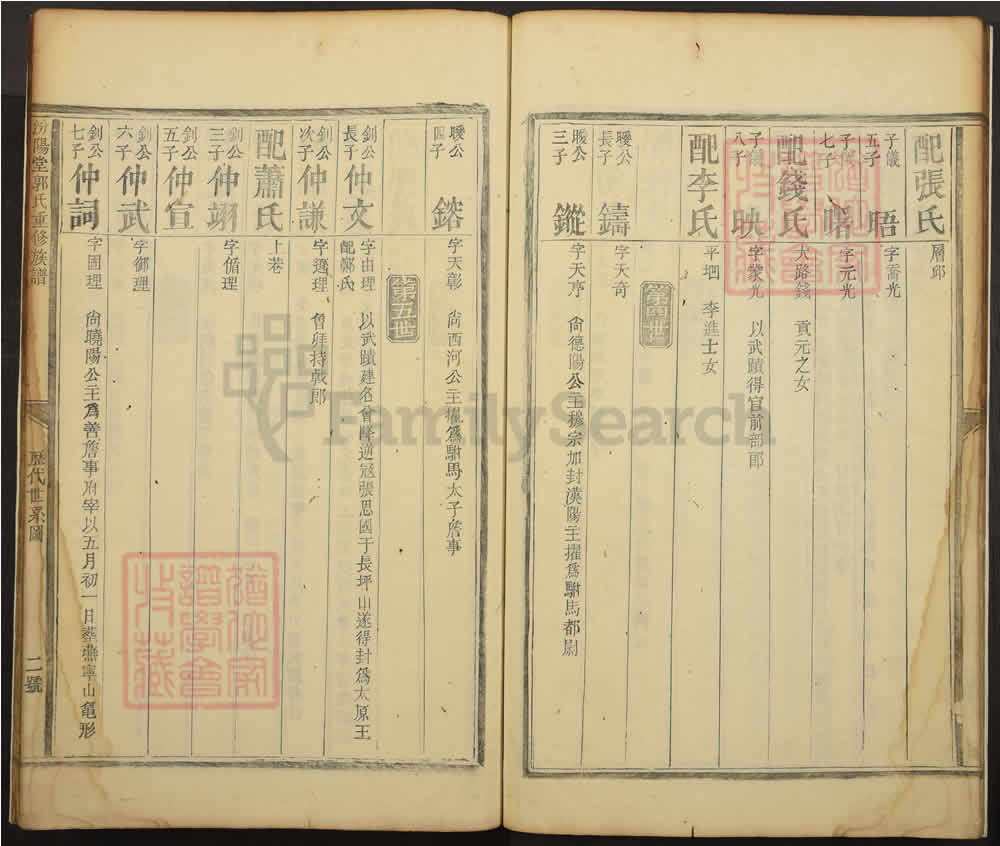 配張氏 層邱
子儀五子 晤 字霱光
子儀七子 曙 字元光
配錢氏 大路錢 貢元之女
子儀八子 映 字蒙光 以武蹟得官前部郎
配李氏 平堈 李進士女
第四世
曖公長子 鑄 字天奇
曖公三子 鏦 字天序 尙德陽公主穆宗加封漢陽主擢爲駙馬都尉
曖公四子 鎔 字天彰 尙西河公主擢爲駙馬太子詹事
第五世
釗公長子 仲文 字由理 以武蹟建名曾降逆冦張思國于長坪山遂得封爲太原王
配鄭氏
釗公次子 仲謙 字遜理 曾拜持戟郎
配蕭氏 上巷
釗公三子 仲翊 字循理
釗公五子 仲宣
釗公六子 仲武 字御理
釗公七子 仲詞 字固理 尙曉陽公主爲善詹事府宰以五月初一日葬燕寧山龜形
汾陽堂郭氏重修族譜
歷代世系圖
二號
FamilySearch